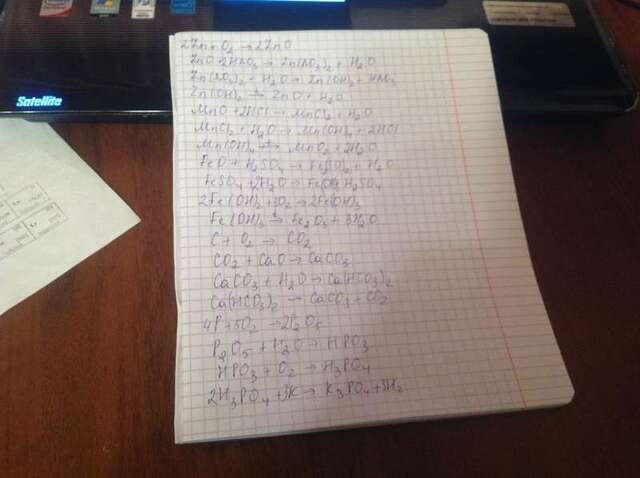 2Zn + O₂ → 2ZnO
ZnO + 2HNO₃ → Zn(NO₃)₂ + H₂O
Zn(NO₃)₂ + H₂O → Zn(OH)₂ + HNO₃
Zn(OH)₂ →t ZnO + H₂O
MnO + 2HCl → MnCl₂ + H₂O
MnCl₂ + H₂O → Mn(OH)₂ + 2HCl
Mn(OH)₄ →t MnO₂ + 2H₂O
FeO + H₂SO₄ → + H₂O
FeSO₄ + 2H₂O → H₂SO₄
2Fe(OH)₂ + 3O₂ → 2Fe(OH)₃
Fe(OH)₃ →t Fe₂O₃ + 3H₂O
C + O₂ → CO₂
CO₂ + CaO → CaCO₃
CaCO₃ + H₂O → Ca(HCO₃)₂
Ca(HCO₃)₂ → CaCO₃ + CO₂
4P + 5O₂ → 2P₂O₅
P₂O₅ + H₂O → HPO₃
HPO₃ + O₂ → H₃PO₄
2H₃PO₄ + 3K → K₃PO₄ + 3H₂
Satellite